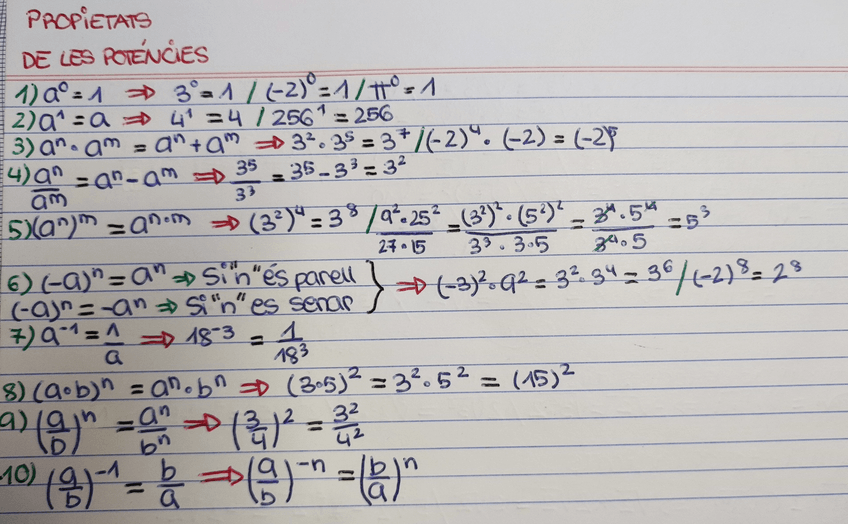 PROPIETATS
DE LES POTÈNCIES
1) a⁰ = 1 ⇒ 3⁰ = 1 / (-2)⁰ = 1 / π⁰ = 1
2) a¹ = a ⇒ 4¹ = 4 / 256¹ = 256
3) aⁿ · aᵐ = aⁿ + aᵐ ⇒ 3² · 3⁵ = 3⁷ / (-2)⁴ · (-2) = (-2)⁵
4) aⁿ/aᵐ = aⁿ - aᵐ ⇒ 3⁵/3³ = 3⁵ - 3³ = 3²
5) (aⁿ)ᵐ = aⁿ·ᵐ ⇒ (3²)⁴ = 3⁸ / 9² · 25²/27 · 15 = (3²)² · (5²)²/3³ · 3 · 5 = 3⁴ · 5⁴/3⁴ · 5 = 5³
6) (-a)ⁿ = aⁿ ⇒ Si "n" és parell } ⇒ (-3)² · 9² = 3² · 3⁴ = 3⁶ / (-2)⁸ = 2⁸
(-a)ⁿ = -aⁿ ⇒ Si "n" es senar
7) a⁻¹ = 1/a ⇒ 18⁻³ = 1/18³
8) (a·b)ⁿ = aⁿ · bⁿ ⇒ (3·5)² = 3² · 5² = (15)²
9) (a/b)ⁿ = aⁿ/bⁿ ⇒ (3/4)² = 3²/4²
10) (a/b)⁻¹ = b/a ⇒ (a/b)⁻ⁿ = (b/a)ⁿ